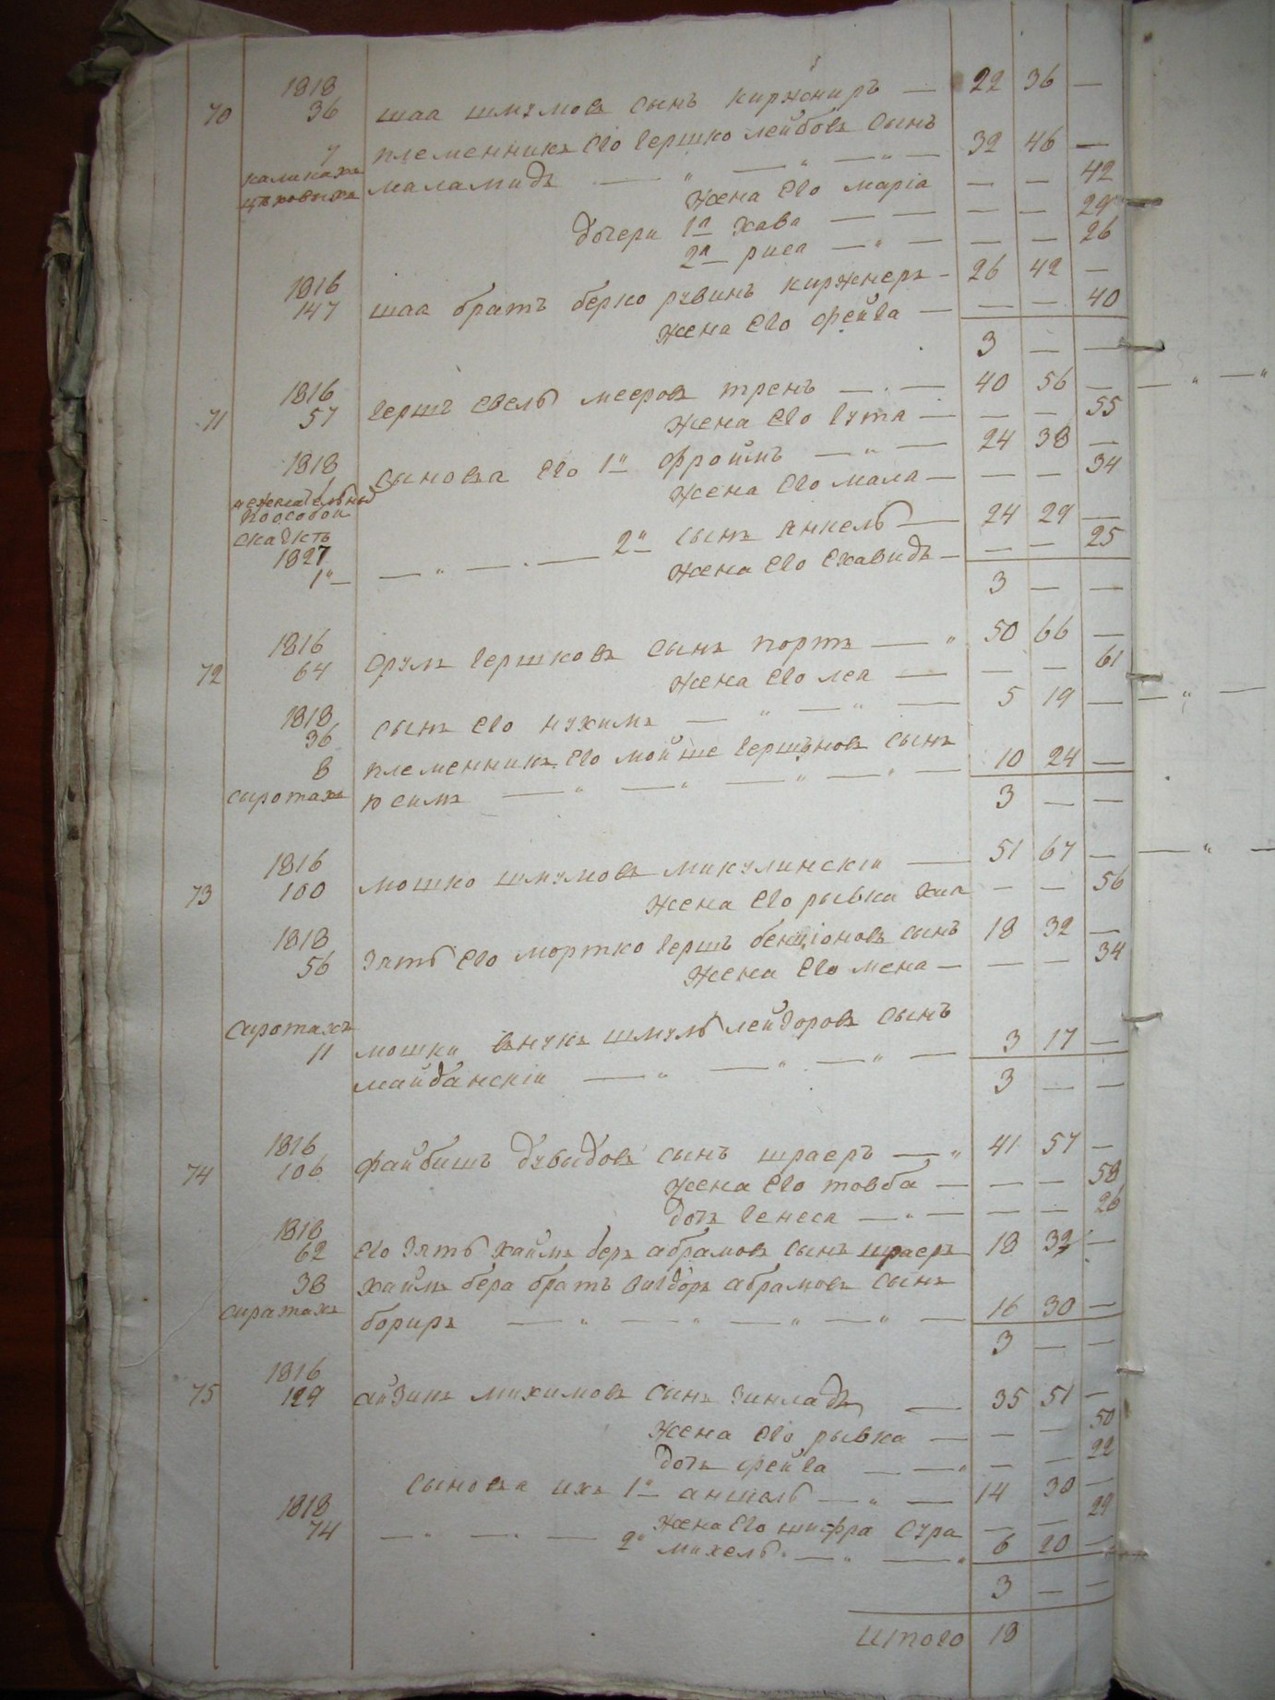 1818
70 36 шаа шмулов сынъ киржниръ — 22 36 —
7 племенникъ его гершко лейбовъ сынъ
маламидъ — „ — „ — 32 46 —
жена его маріа — — 42
дочери 1я хава — — — 29
2я риса — „ — — — 26
1816
147 шаа братъ берко рувинъ киржнеръ — 26 42 —
жена его фейга — — — 40
3 — —
1816
71 57 гершъ евель мееровъ тренъ — 40 56 —
жена его гута — — — 55
1818
сыновя его 1й фроимъ — „ — 24 38 —
жена его мала — — — 34
по особой
1827
2й сынъ янкель — 24 29 —
1й — „ — . — жена его ехавидъ — — — 25
3 — —
1816
72 64 срулъ гершковъ сынъ портъ — „ 50 66 —
жена его леа — — — 61
1818
36 сынъ его нухимъ — „ — „ — 5 19 —
8 племенникъ его мойше гершновъ сынъ
сиротахъ — „ — „ — „ — „ — 10 24 —
3 — —
1816
73 100 мошко шмуловъ микулинскіи — 51 67 —
жена его рывка хая — — 56
1818
56 зять его мортко гершъ бенціоновъ сынъ 18 32 —
жена его мена — — — 34
сиротахъ
11 мошки внукъ шмуль лейзоровъ сынъ
майданскіи — „ — „ — „ — 3 17 —
3 — —
1816
74 106 файбишъ дувыдовъ сынъ шраеръ — „ 41 57 —
жена его товба — — — 58
дочь генеса — „ — — — 26
1818
62 его зять хаимъ беръ абрамовъ сынъ шраеръ 18 32 —
38 хаимъ бера братъ вигдоръ абрамовъ сынъ
сиротахъ бориръ — „ — „ — „ — „ — 16 30 —
3 — —
1816
75 129 айзикъ михимовъ сынъ зинладъ — 35 51 —
жена его рывка — — — 50
дочь фейга — — „ — — 22
сыновя ихъ 1й аншель — „ — 14 30 —
1818
жена его шифра сура — — 29
74 — „ — . — 2й михель — „ — „ 6 20 —
3 — —
итого 18